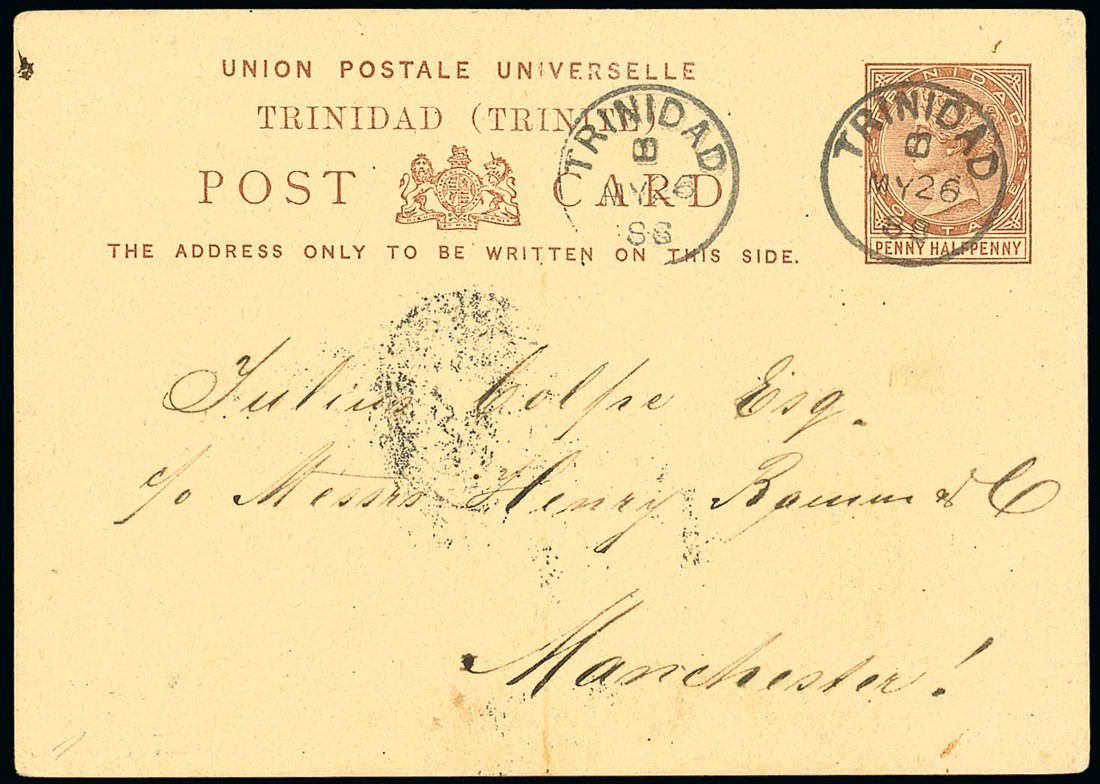 UNION POSTALE UNIVERSELLE
TRINIDAD (TRINITE)
POST CARD
THE ADDRESS ONLY TO BE WRITTEN ON THIS SIDE.
TRINIDAD
B
MY 26
86
TRINIDAD
B
MY 26
86
TRINIDAD POSTAGE
PENNY HALFPENNY
Julius Colpe Esq.
c/o Messrs Henry & C
Manchester!